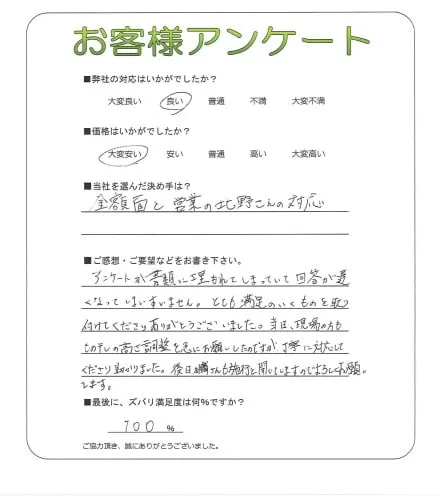 お客様アンケート
■弊社の対応はいかがでしたか?
大変良い 良い 普通 不満 大変不満
■価格はいかがでしたか?
大変安い 安い 普通 高い 大変高い
■当社を選んだ決め手は?
金額面と営業の北野さんの対応
■ご感想・ご要望などをお書き下さい。
アンケートが書類に埋もれてしまっていて回答が遅
くなってしまいすいません。とても満足のいくものを取り
付けてくださりありがとうございました。当日、現場の方も
の高さ調整を急にお願いしたのですが丁寧に対応して
くださり助かりました。後日 さんも施行と聞いてますのでよろしくお願いし
ます。
■最後に、ズバリ満足度は何%ですか?
100 %
ご協力頂き、誠にありがとうございました。